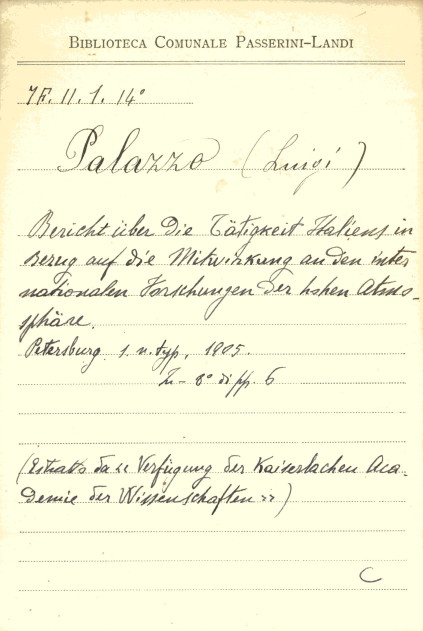 BIBLIOTECA COMUNALE PASSERINI-LANDI
7F. II. 1. 14°
Palazzo (Luigi)
Bericht über die Tätigkeit Italiens in
Bezug auf die Mitwirkung an den inter
nationalen Forschungen der hohen Atmo-
sphäre.
Petersburg. s. n. typ, 1905.
In-8° di pp. 6
(Estratto da << Verfügung der Kaiserlachen Aca-
demie der Wissenschaften >>)
C